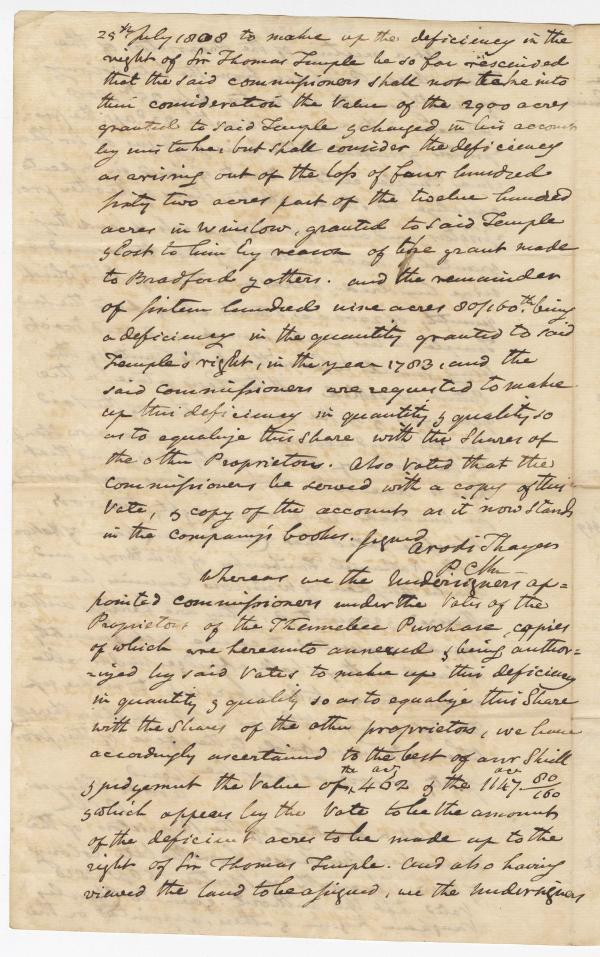 28th July 1808 to make up the deficiency in the
right of Sir Thomas Temple be so far rescinded
that the said commissioners shall not take into
their consideration the Value of the 2900 acres
granted to said Temple & charged in his account
by mistake; but shall consider the deficiency
as arising out of the loss of four hundred
sixty two acres part of the twelve hundred
acres in Winslow, granted to said Temple
& lost to him by reason of the grant made
to Bradford & others. and the remainder
of sixteen hundred nine acres 80/160.th being
a deficiency in the quantity granted to said
Temple's right, in the year 1783, and the
said commissioners are requested to make
up this deficiency in quantity & quality so
as to equalize this Share with the Shares of
the other Proprietors. Also Voted that the
Commissioners be served with a copy of this
Vote, & copy of the accounts as it now Stands
in the company's books. Signed
Arodi Thayer
P. Clk
Whereas we the Undersigners ap=
pointed commissioners under the Votes of the
Proprietors of the Kennebec Purchase, copies
of which are hereunto annexed & being author=
=ized by said Votes to make up this deficiency
in quantity & quality so as to equalize this Share
with the Shares of the other proprietors, we have
accordingly ascertained to the best of our Skill
& judgement the Value of the 462 acrs & the 1147 acrs 80/160
& which appears by the Vote to be the amount
of the deficient acres to be made up to the
right of Sir Thomas Temple. And also having
viewed the land to be assigned, we the Undersigners